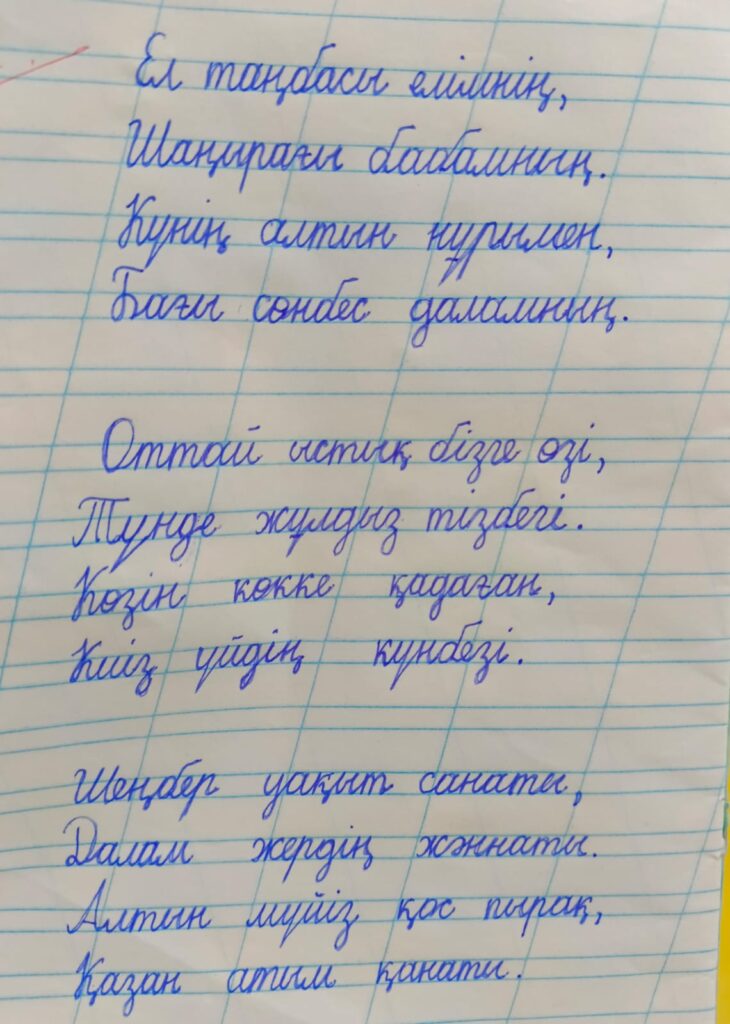 Ел таңбасы елімнің,
Шаңырағы бабамның.
Күнің алтын нұрымен,
Бағы сөнбес даламның.
Оттай ыстық бізге өзі,
Түнде жұлдыз тізбегі.
Көзін көкке қадаған,
Киіз үйдің күнбезі.
Шеңбер уақыт санаты,
Далам жердің жәннаты.
Алтын мүйіз қос пырақ,
Қазан атым қанаты.